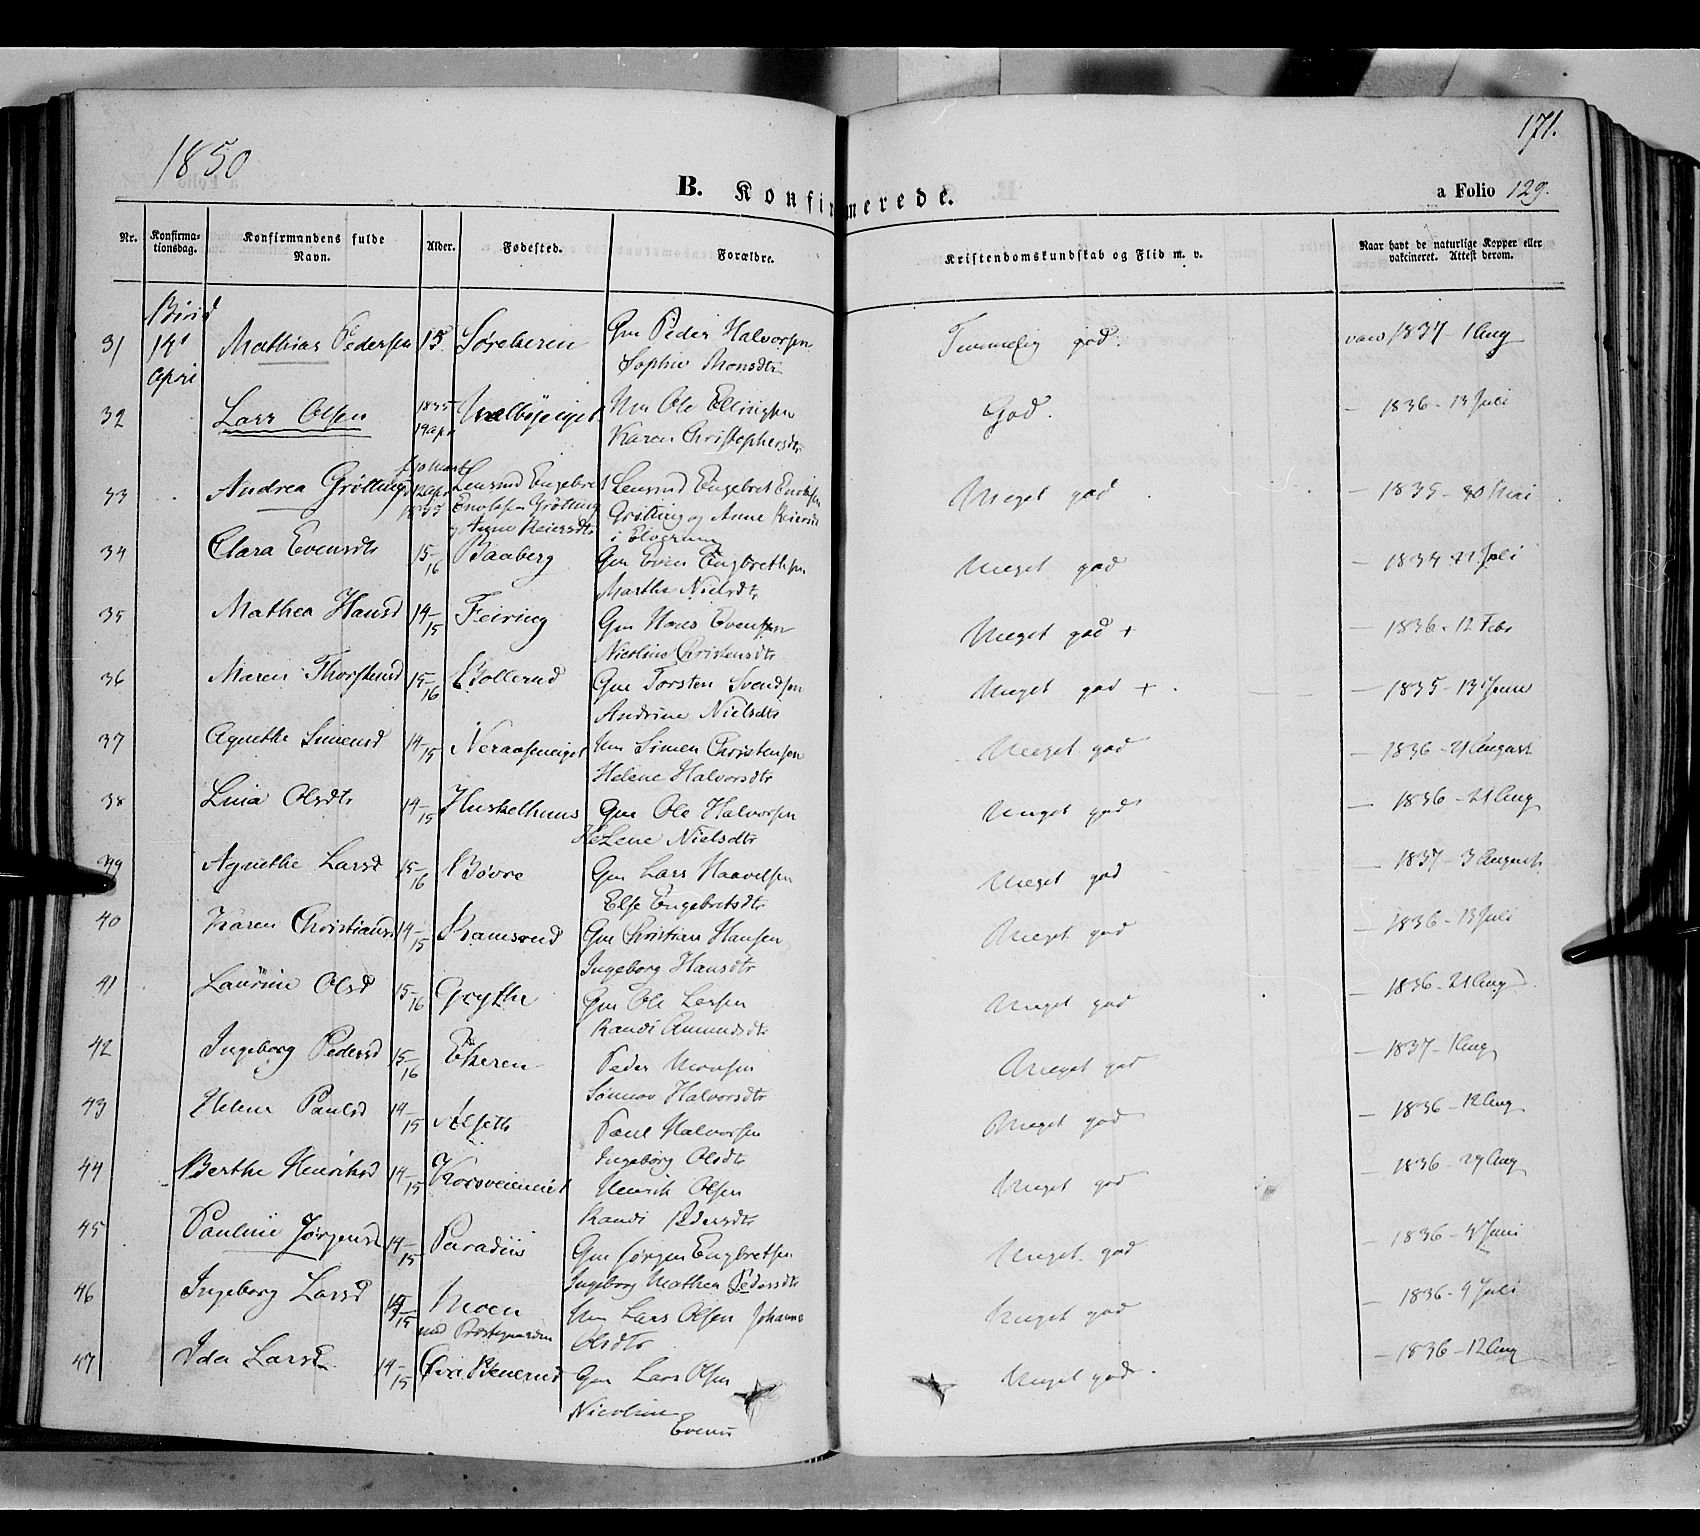 171.
1850
B. Konfirmerede.
a Folio 129.
Nr.
Konfirma-
tionsdag.
Konfirmandens fulde
Navn.
Alder.
Fødested.
Forældre.
Kristendomskundskab og Flid m. v.
Naar havt de naturlige Kopper eller
vakcineret. Attest derom.
Birid
31 14 Mathias Pedersen 15 Gm Peder Halvorsen Temmelig god. vacc 1837 - 1 Aug
April Sophie Monsdtr
32 Lars Olsen 1835 Um Ole Ellingsen God. — 1836 - 13 Juli
19 Apr Karen Christophersdtr
33 Andrea Grötting Lensmd Engebret Lensmd Engebret Meget god — 1835 - 30 Mai
Grötting Grötting og Anne
og Anne i Elverum
34 Clara Evensdtr 15-16 Faaberg Gm Even Engbrethsen Meget god — 1834 Juli
Marthe Nielsdtr
35 Mathea Hansd 14-15 Feiring Gm Hans Evensen Meget god + — 1836 - 12 Febr
Nicoline Christensdtr
36 Maren Thorstensd 15-16 Bollerud Gm Torsten Svendsen Meget god + — 1835 - 13 Juni
Andrine Nielsdtr
37 Agnethe Simensd 14-15 Neraaseneiget Um Simen Christensen Meget god — 1836 - 21 August
Helene Halvorsdtr
38 Lina Olsdtr 14-15 Huskelhuus Gm Ole Halvorsen Meget god — 1836 - 21 Aug
Helene Nielsdtr
39 Agnethe Larsd 15-16 Bövre Gm Lars Haavelsen Meget god — 1837 - 3 August
Else Engebretsdtr
40 Karen Christiansd 14-15 Ramsrud Gm Christian Hansen Meget god — 1836 - 13 Juli
Ingeborg Hansdtr
41 Laurine Olsd 15-16 Grythe Gm Ole Larsen Meget god — 1836 - 21 Aug
Randi Amundsdtr
42 Ingeborg Pedersd 15-16 Ekeren Peder Monsen Meget god — 1837 - 1 Aug
Sönnov Halvorsdtr
43 Helene Paulsd 14-15 Alseth Paul Halvorsen Meget god — 1836 - 12 Aug
Ingeborg Olsdtr
44 Berthe Henriksd 14-15 Korsveieneiet Henrik Olsen Meget god — 1836 - 29 Aug
Randi Pedersdtr
45 Pauline Jørgensd 14-15 Paradiis Gm Jørgen Engbretsen Meget god — 1836 - Juni
Ingeborg Mathea Pedersdtr
46 Ingeborg Larsd 14-15 Moen Um Lars Olsen Johanne Meget god — 1836 - 9 Juli
ned Præstegaarden Olsdtr
47 Ida Larsd 14-15 Gm Lars Olsen Meget god. — 1836 - 12 Aug
Nicoline
Evensd